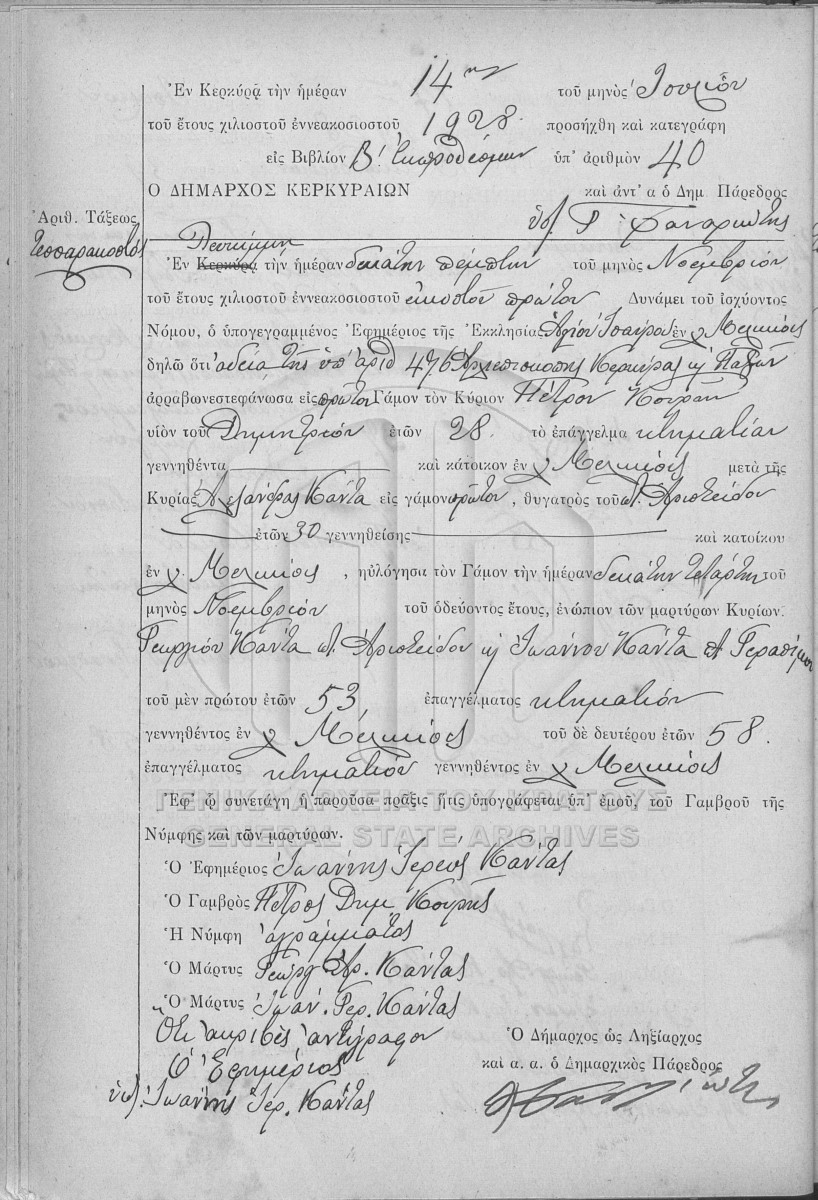 Ἐν Κερκύρᾳ τὴν ἡμέραν 14ην τοῦ μηνὸς Ἰουνίου
τοῦ ἔτους χιλιοστοῦ ἐννεακοσιοστοῦ 1928 προσήχθη καὶ κατεγράφη
εἰς Βιβλίον Β! Ἐκπροθέσμων ὑπ' ἀριθμὸν 40
Ο ΔΗΜΑΡΧΟΣ ΚΕΡΚΥΡΑΙΩΝ καὶ ἀντ' α ὁ Δημ. Πάρεδρος
Ἀριθ. Τάξεως
Τεσσαρακοστὸς
ὑπ.
Λευκίμμη
Ἐν Κερκύρᾳ τὴν ἡμέραν δεκάτην πέμπτην τοῦ μηνὸς Νοεμβρίου
τοῦ ἔτους χιλιοστοῦ ἐννεακοσιοστοῦ εἰκοστοῦ πρώτου Δυνάμει τοῦ ἰσχύοντος
Νόμου, ὁ ὑπογεγραμμένος Ἐφημέριος τῆς Ἐκκλησίας Ἁγίου ἐν χ Μελικίας
δηλῶ ὅτι ἀδείᾳ τῆς ὑπ' ἀριθ 476 Ἀρχιεπισκοπῆς Κερκύρας κ Παξῶν
ἀρραβωνεστεφάνωσα εἰς πρῶτον Γάμον τὸν Κύριον Πέτρον Κουρῆν
υἱὸν τοῦ Δημητρίου ἐτῶν 28. τὸ ἐπάγγελμα κτηματίαν
γεννηθέντα καὶ κάτοικον ἐν χ Μελικίας μετὰ τῆς
Κυρίας Ἀλεξάνδρας Κάντα εἰς γάμον πρῶτον, θυγατρὸς τοῦ π. Ἀριστείδου
ἐτῶν 30 γεννηθείσης καὶ κατοίκου
ἐν χ. Μελικίας, ηὐλόγησα τὸν Γάμον τὴν ἡμέραν δεκάτην τετάρτην τοῦ
μηνὸς Νοεμβρίου τοῦ ὁδεύοντος ἔτους, ἐνώπιον τῶν μαρτύρων Κυρίων.
Γεωργίου Κάντα π. Ἀριστείδου κ Ἰωάννου Κάντα π Γερασίμου
τοῦ μὲν πρώτου ἐτῶν 53, ἐπαγγέλματος κτηματίου
γεννηθέντος ἐν χ Μελικίας τοῦ δὲ δευτέρου ἐτῶν 58.
ἐπαγγέλματος κτηματίου γεννηθέντος ἐν χ Μελικίας
Ἐφ' ᾧ συνετάγη ἡ παροῦσα πρᾶξις ἥτις ὑπογράφεται ὑπ' ἐμοῦ, τοῦ Γαμβροῦ τῆς
ΓΕΝΙΚΑ ΑΡΧΕΙΑ ΤΟΥ ΚΡΑΤΟΥΣ
Νύμφης καὶ τῶν μαρτύρων.
GENERAL STATE ARCHIVES
Ὁ Ἐφημέριος Ἰωάννης Ἱερεὺς Κάντας
Ὁ Γαμβρὸς Πέτρος Δημ Κουρῆς
Ἡ Νύμφη ἀγράμματος
Ὁ Μάρτυς Γεώργ Ἀρ. Κάντας
Ὁ Μάρτυς Ἰωάν. Γερ. Κάντας
Ὅτι ἀκριβὲς ἀντίγραφον
Ὁ Ἐφημέριος
ὑπ. Ἰωάννης Ἱερ. Κάντας
Ὁ Δήμαρχος ὡς Ληξίαρχος
καὶ α. α. ὁ Δημαρχικὸς Πάρεδρος